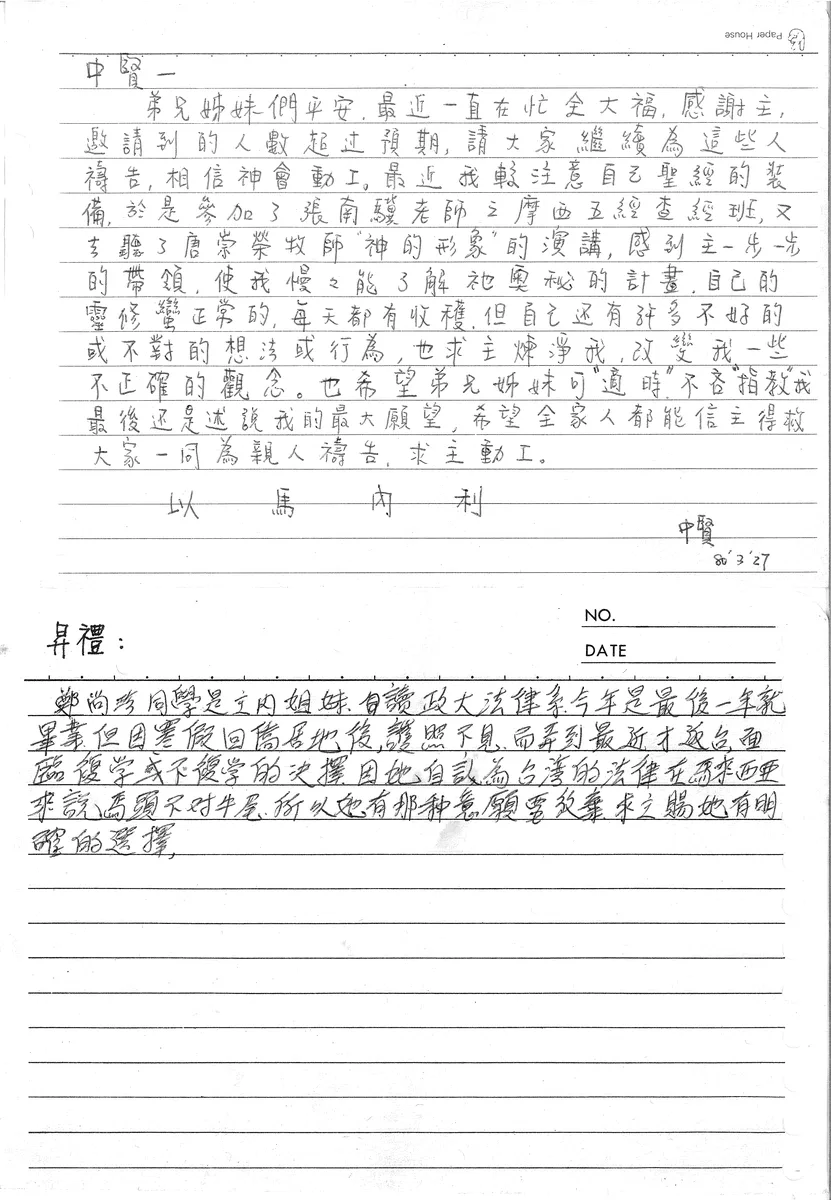 Paper House
中賢一
弟兄姊妹們平安,最近一直在忙全大福,感謝主,
邀請到的人數超过預期,請大家繼續為這些人
禱告,相信神會動工。最近我較注意自己聖經的裝
備,於是參加了張南驥老師之摩西五經查經班,又
去聽了唐崇榮牧師"神的形象"的演講,感到主一步一步
的帶領,使我慢々能了解祂奧秘的計畫,自己的
靈修蠻正常的,每天都有收穫,但自己还有許多不好的
或不對的想法或行為,也求主煉淨我,改變我一些
不正確的觀念。也希望弟兄姊妹可"適時"不吝"指教"我
最後还是述說我的最大願望,希望全家人都能信主得救
大家一同為親人禱告,求主動工。
以馬內利
中賢
80'3'27
NO.
昇禮:
DATE
鄭尚珍同學是主內姐妹.目讀政大法律系.今年是最後一年就
畢業但因寒假回僑居地後,護照不見.而弄到最近才返台,面
臨復学或不復学的決擇.因她自認為台灣的法律在馬來西亞
來說馬頭不对牛尾.所以她有那种意願要放棄.求主賜她有明
確的選擇,